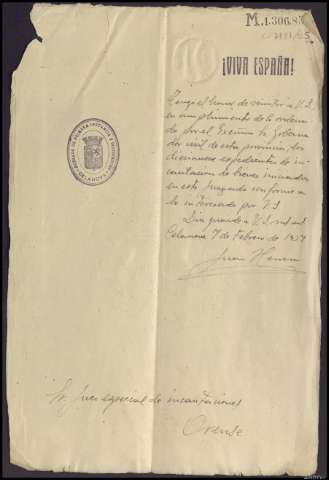 M.1.306.85
¡VIVA ESPAÑA!
Tengo el honor de remitir a V.S.
en cumplimiento de lo ordena-
do por el Excmo Sr Goberna-
dor civil de esta provincia, los
diecinueve expedientes de in-
cautacion de bienes incoados
en este Juzgado conforme a
lo interesado por V.S
Dios guarde a V.S. m. a.
Celanova 7 de Febrero de 1937
Juan
Sr Juez especial de incautaciones
Orense